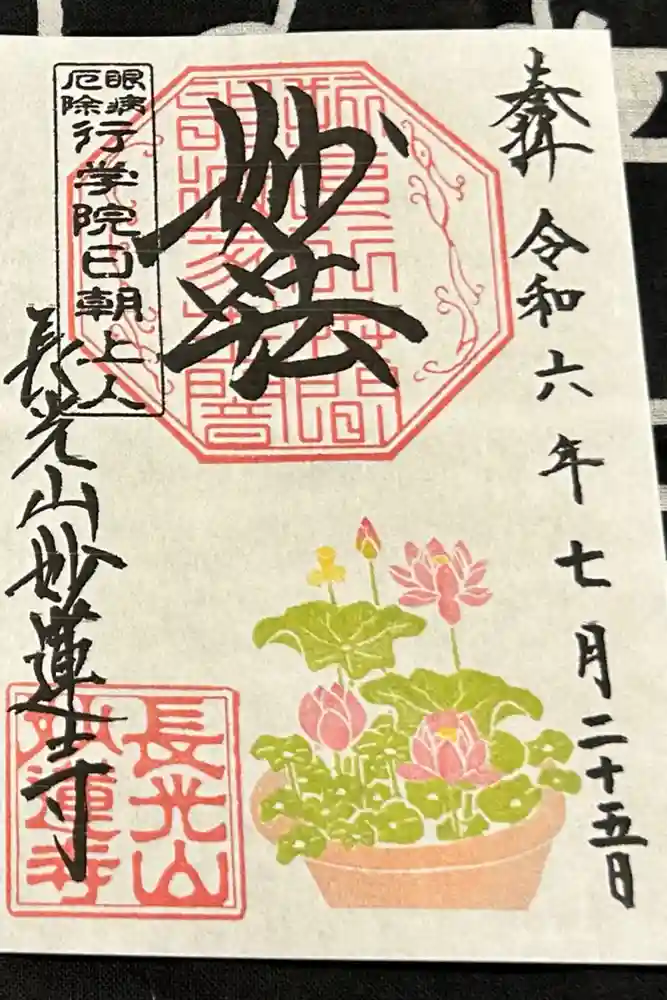 奉拝 令和六年七月二十五日
妙法
眼病
厄除
行学院日朝上人
長光山妙蓮寺
長光山
妙蓮寺